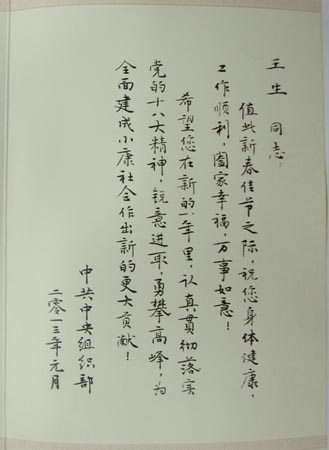 王生同志：
值此新春佳节之际，祝您身体健康，
工作顺利，阖家幸福，万事如意！
希望您在新的一年里，认真贯彻落实
党的十八大精神，锐意进取，勇攀高峰，为
全面建成小康社会作出新的更大贡献！
中共中央组织部
二零一三年元月